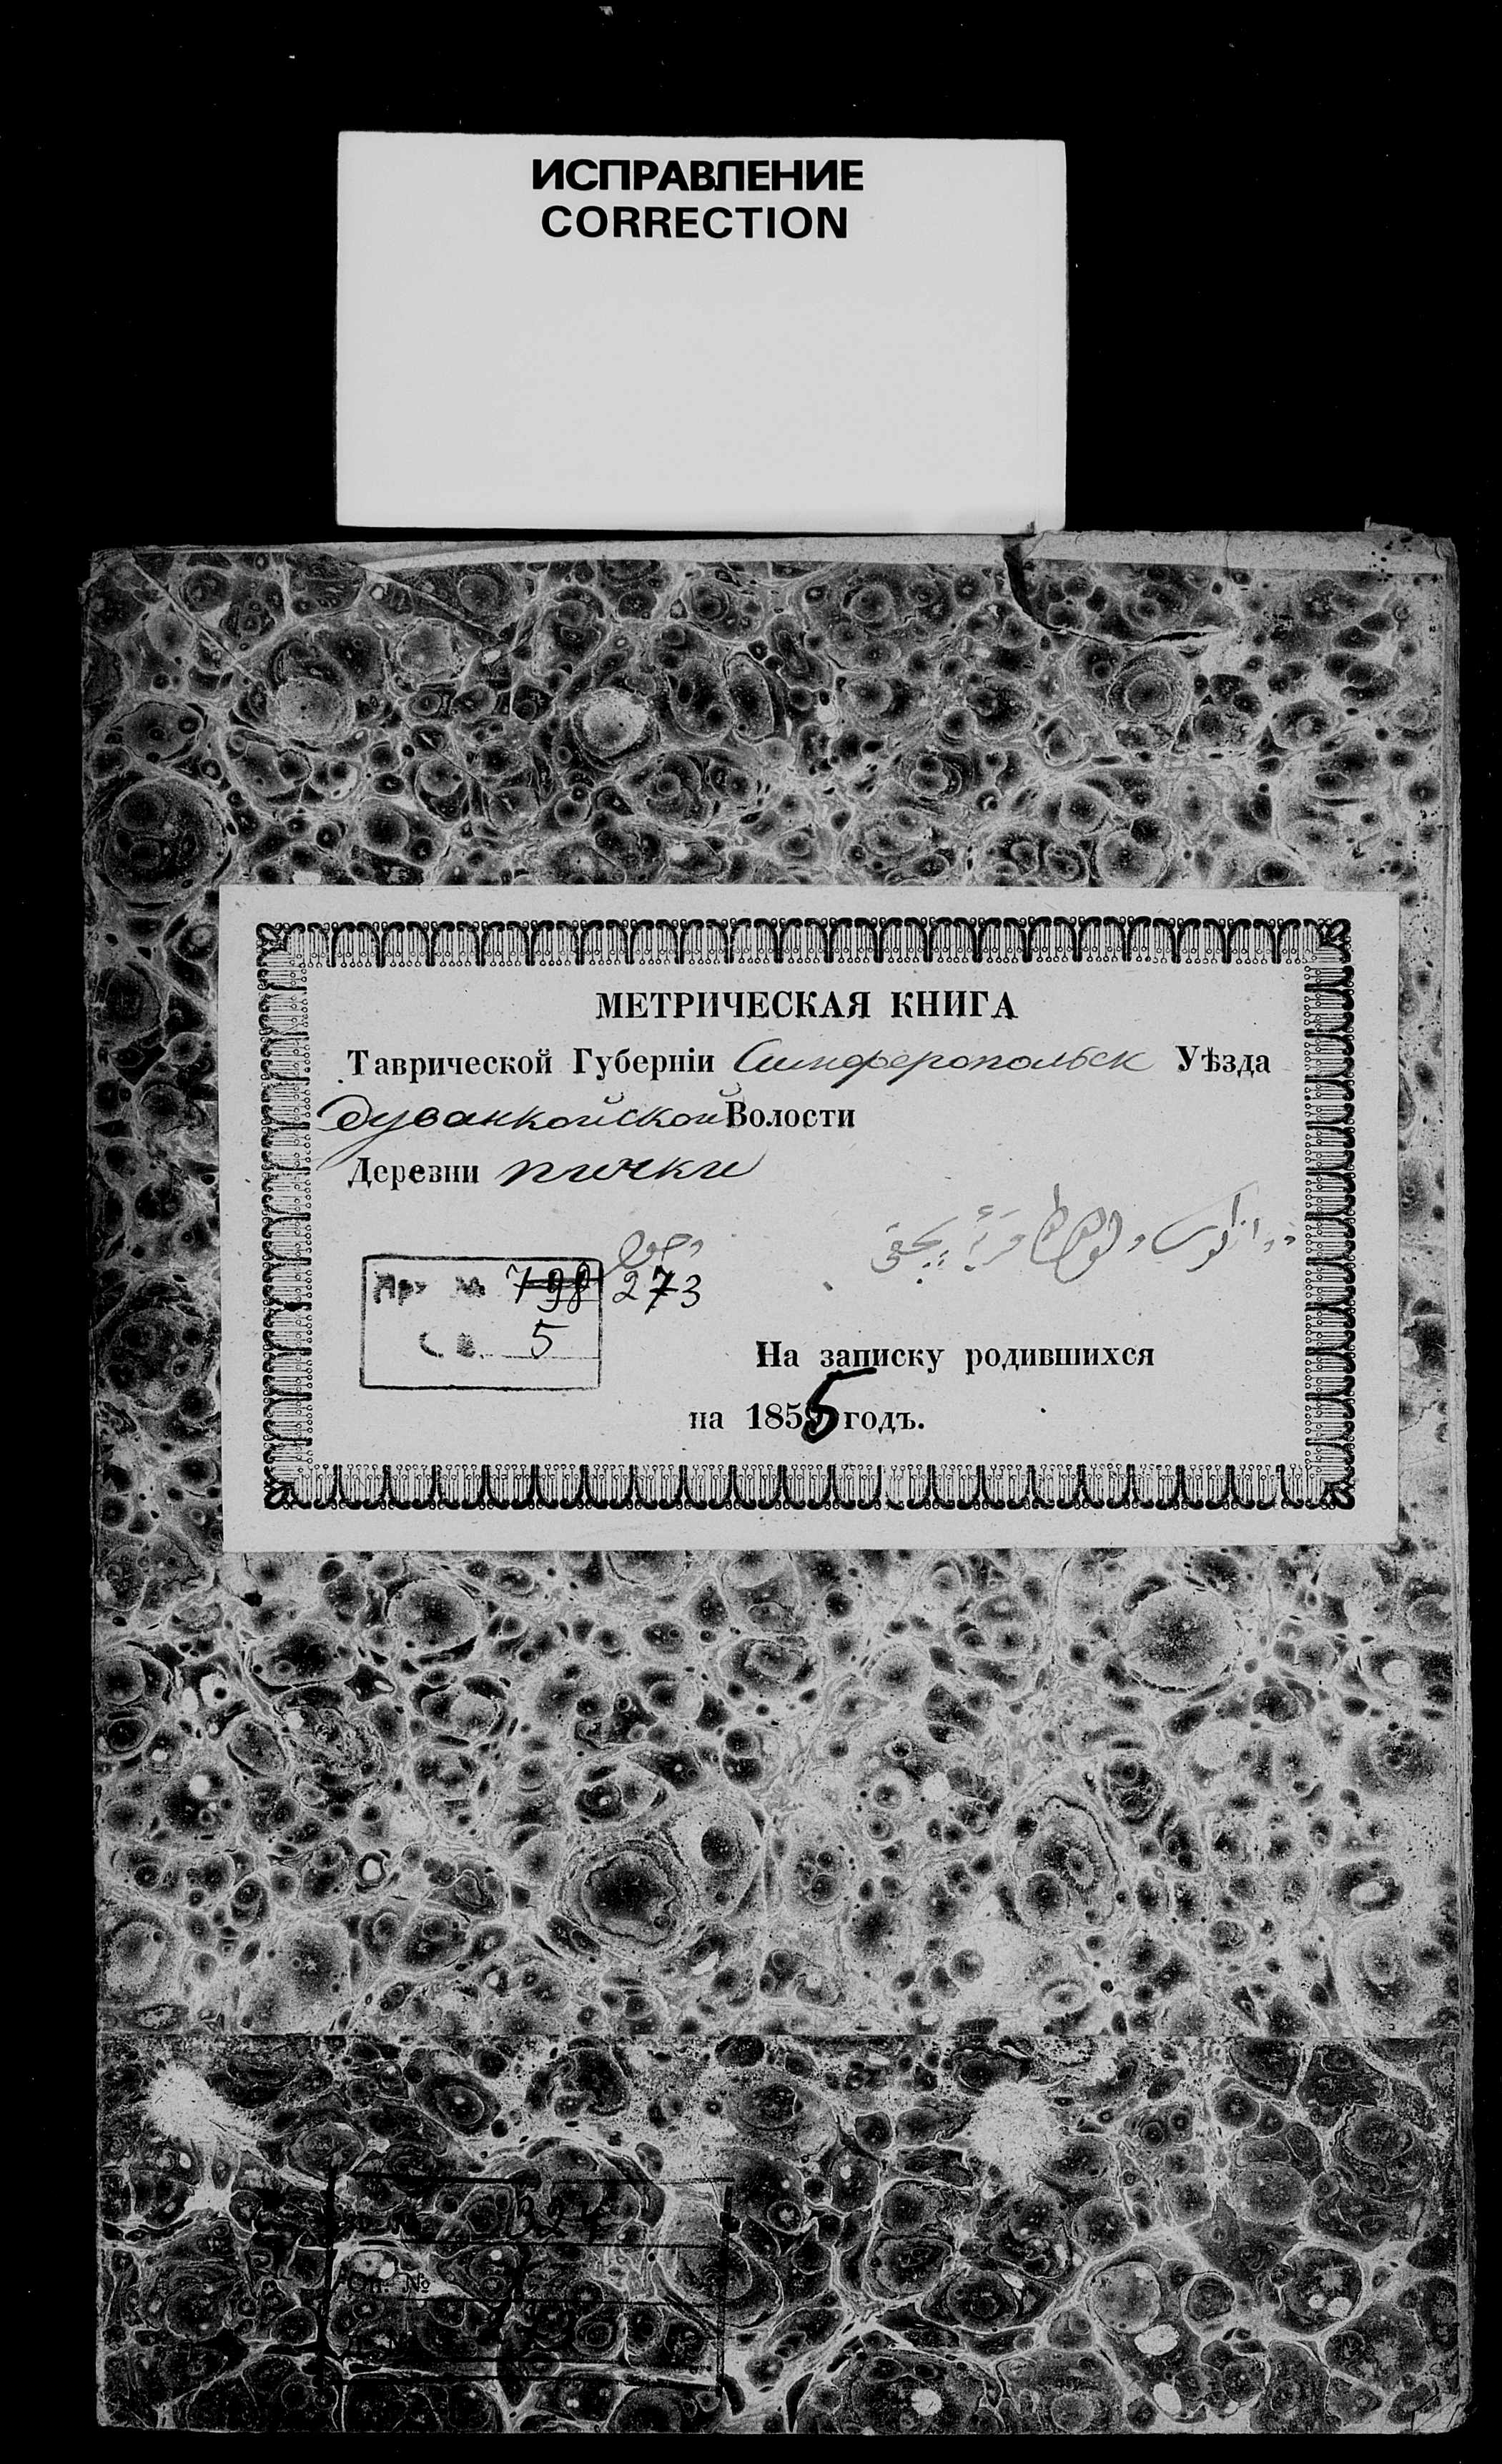 ИСПРАВЛЕНИЕ
CORRECTION
МЕТРИЧЕСКАЯ КНИГА
Таврической Губернiи Симферопольск Уѣзда
Дуванкойской Волости
Деревни пички
798 273
5
На записку родившихся
на 1855 годъ.
Оп. №